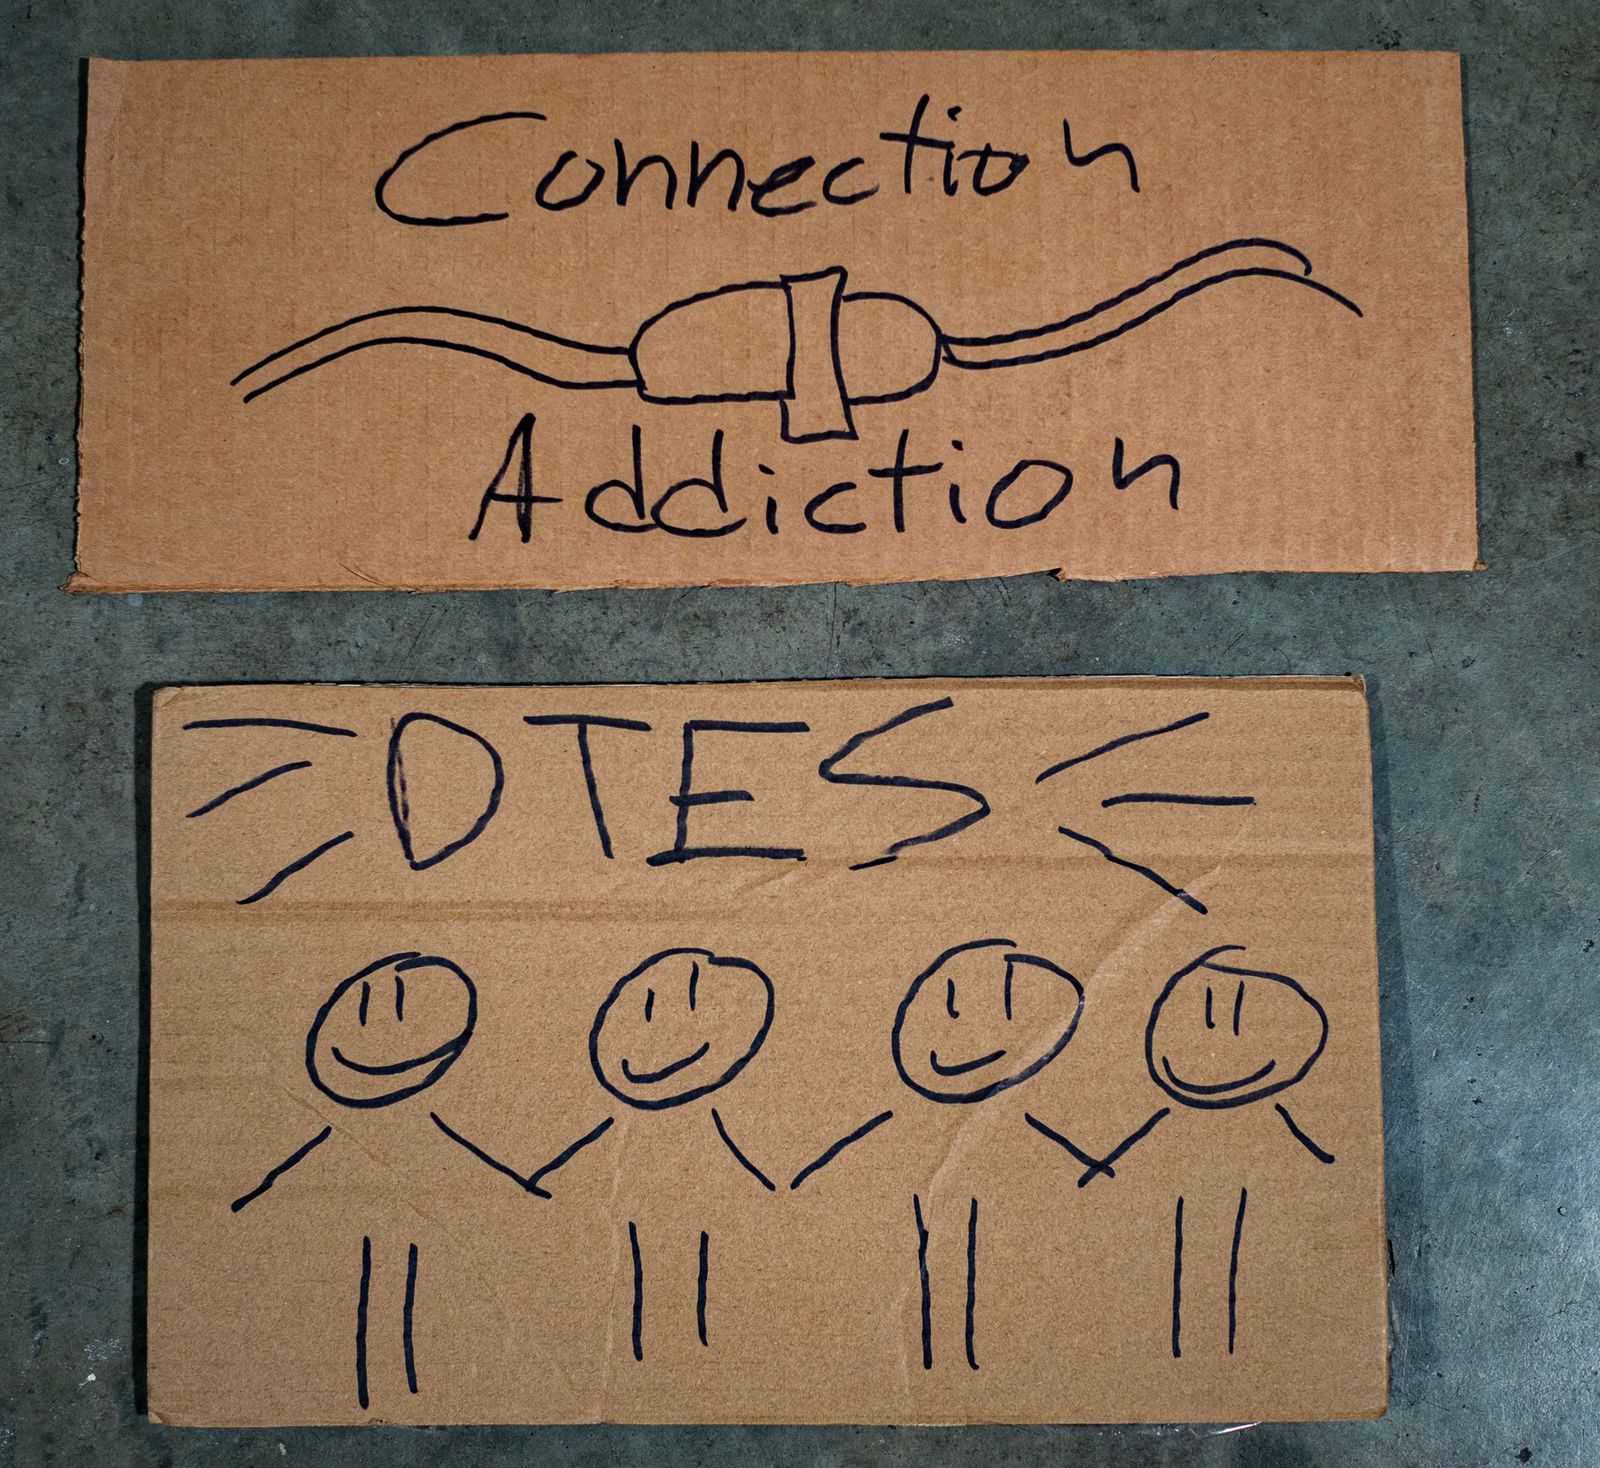 Connection
Addiction
DTES